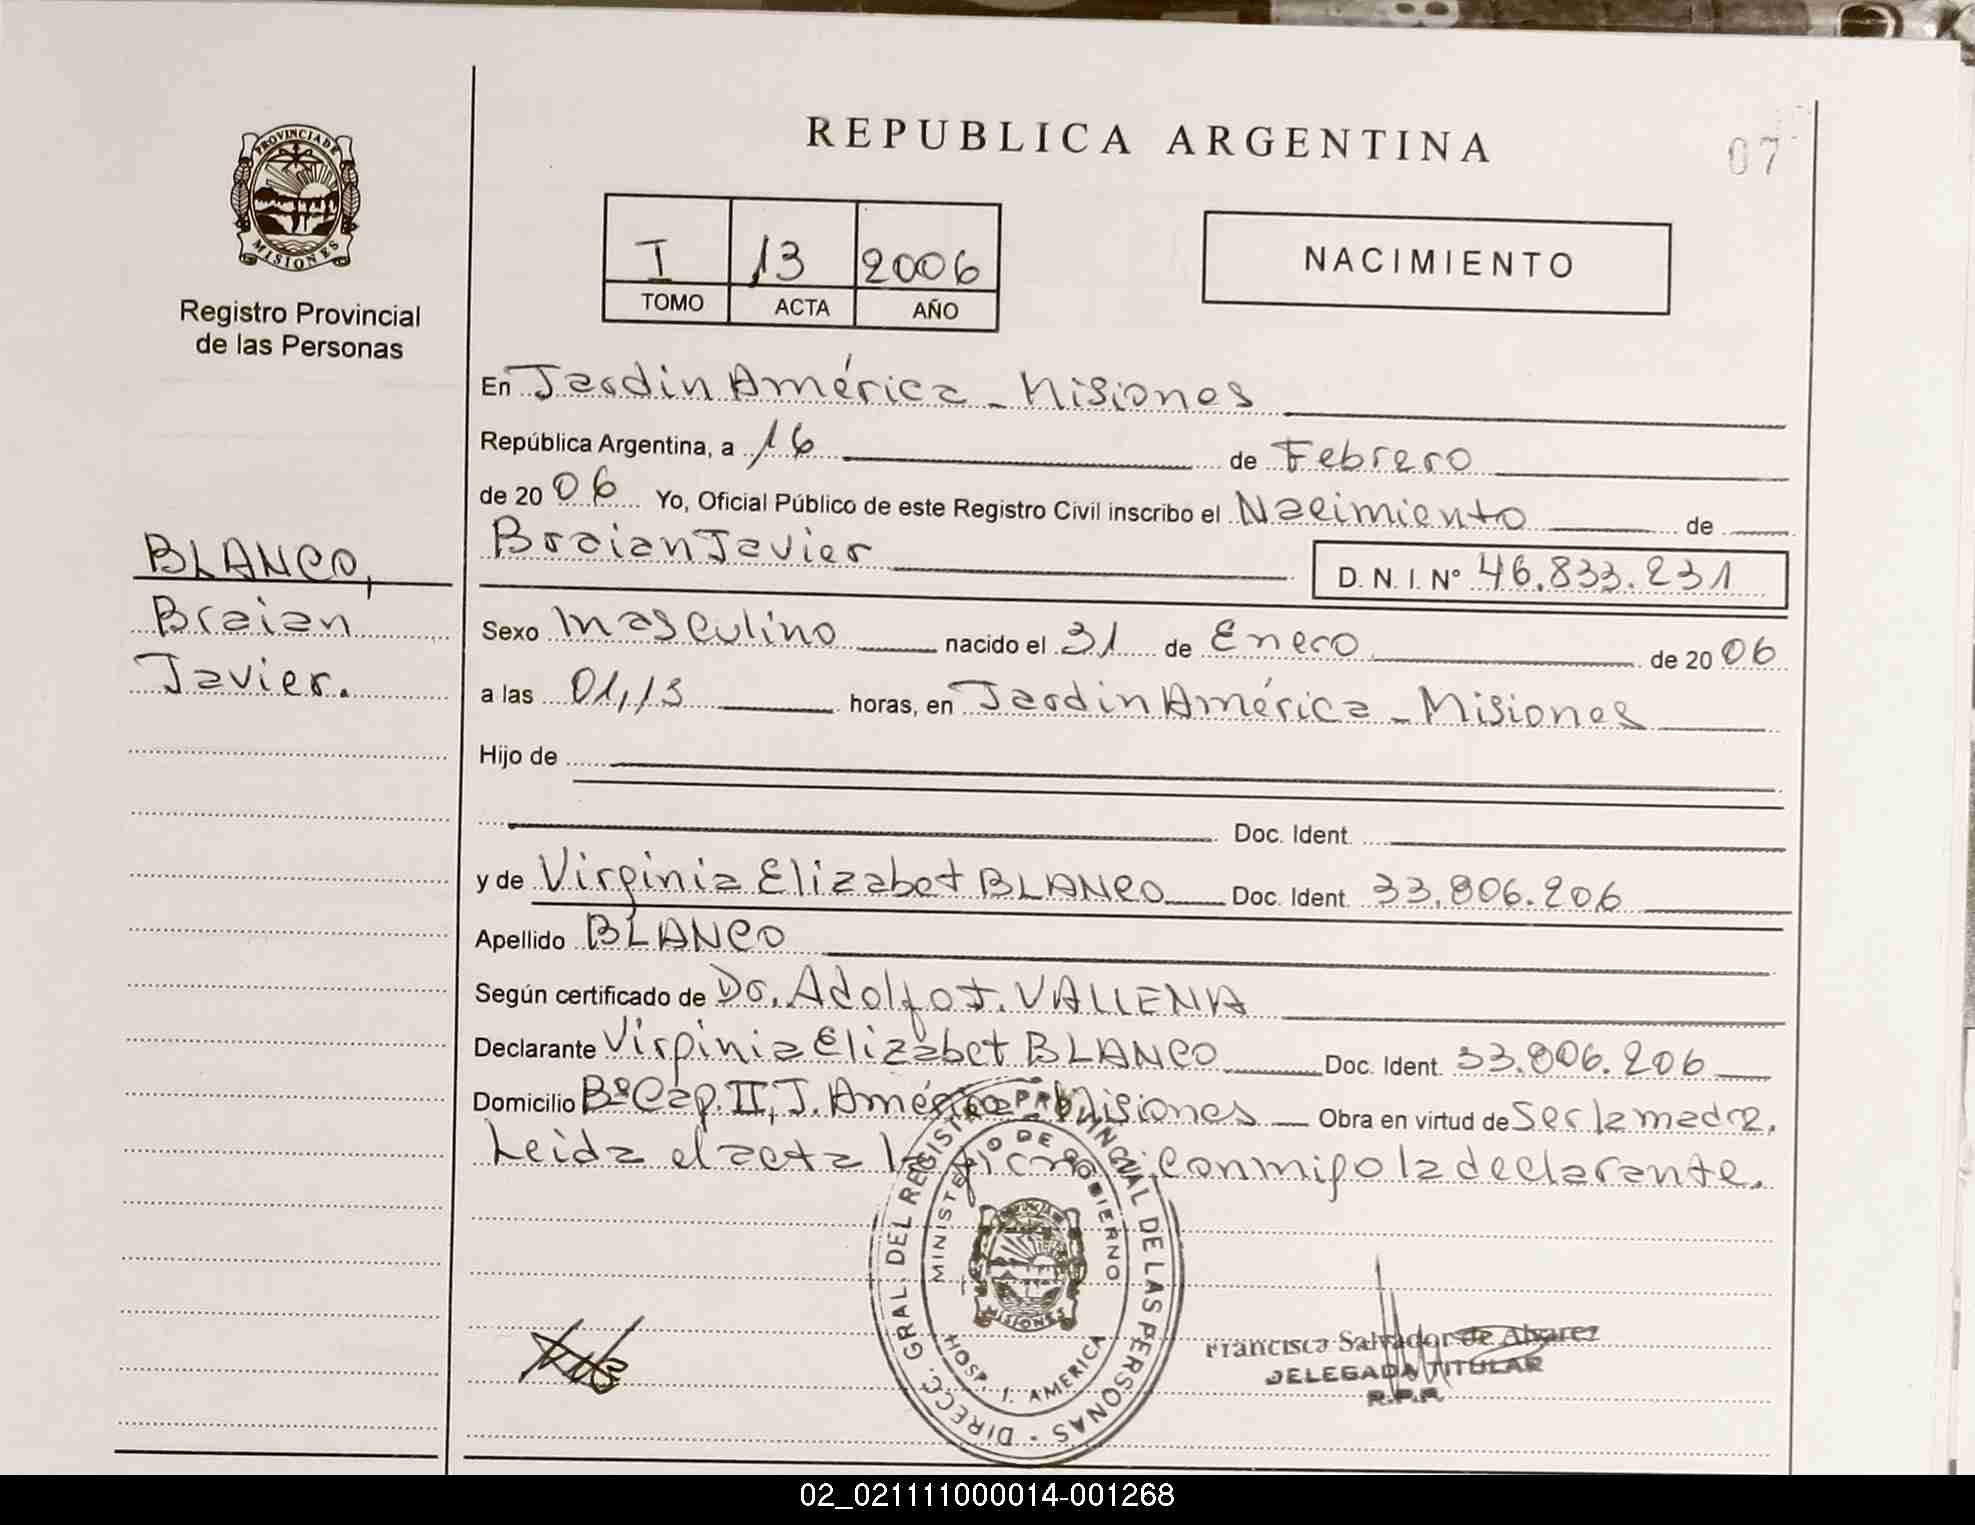 REPUBLICA ARGENTINA
07
PROVINCIA DE
MISIONES
Registro Provincial
de las Personas
I 13 2006
TOMO ACTA AÑO
NACIMIENTO
En Jardin América - Misiones
República Argentina, a 16 de Febrero
de 20 06 Yo, Oficial Público de este Registro Civil inscribo el Nacimiento de
Braian Javier
D. N. I. N° 46.833.231
BLANCO,
Braian
Javier.
Sexo Masculino nacido el 31 de Enero de 20 06
a las 01,13 horas, en Jardin América - Misiones
Hijo de
Doc. Ident.
y de Virginia Elizabet BLANCO Doc. Ident. 33.806.206
Apellido BLANCO
Según certificado de Dr. Adolfo J. VALLENA
Declarante Virginia Elizabet BLANCO Doc. Ident. 33.806.206
Domicilio Bº Cap. II, J. América - Misiones Obra en virtud de Ser la madre.
Leida el acta la firma conmigo la declarante.
DIRECC. GRAL. DEL REGISTRO PROVINCIAL DE LAS PERSONAS -
MINISTERIO DE GOBIERNO
MISIONES
HOSP. J. AMERICA
Francisca Salvador de Alvarez
DELEGADA TITULAR
R.P.P.
02_021111000014-001268